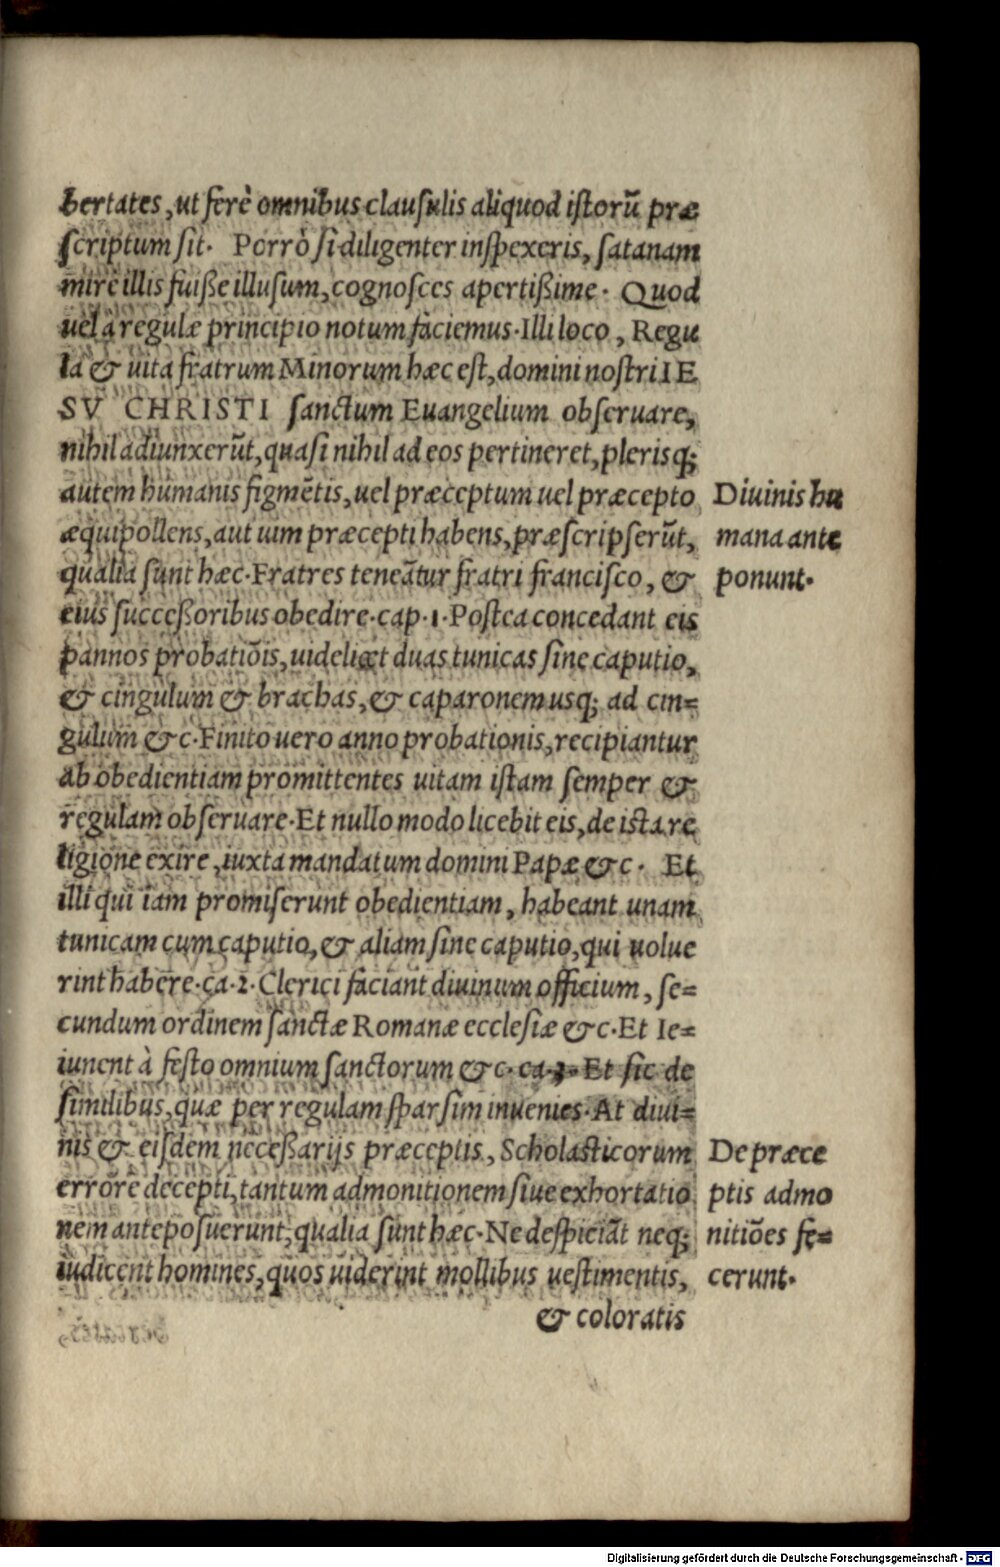 bertates, ut ferè omnibus clausulis aliquod istorū præ
scriptum sit. Porrò si diligenter inspexeris, satanam
mirè illis fuiße illusum, cognosces apertißime. Quod
uel à regulæ principio notum faciemus. Illi loco, Regu
la & uita fratrum Minorum hæc est, domini nostri IE
SV CHRISTI sanctum Euangelium obseruare,
nihil adiunxerūt, quasi nihil ad eos pertineret, plerisq;
autem humanis figmētis, uel præceptum uel præcepto
æquipollens, aut uim præcepti habens, præscripserūt,
qualia sunt hæc. Fratres teneātur fratri francisco, &
eius succeßoribus obedire. cap. 1. Postea concedant eis
pannos probatiōis, uidelicet duas tunicas sine caputio,
& cingulum & brachas, & caparonem usq; ad cin=
gulum &c. Finito uero anno probationis, recipiantur
ab obedientiam promittentes uitam istam semper &
regulam obseruare. Et nullo modo licebit eis, de ista re
ligione exire, iuxta mandatum domini Papæ &c. Et
illi qui iam promiserunt obedientiam, habeant unam
tunicam cum caputio, & aliam sine caputio, qui uolue
rint habere. ca. 2. Clerici faciant diuinum officium, se=
cundum ordinem sanctæ Romanæ ecclesiæ &c. Et Ie=
iunent à festo omnium sanctorum &c. ca. 3. Et sic de
similibus, quæ per regulam sparsim inuenies. At diui=
nis & eisdem neceßarijs præceptis, Scholasticorum
errore decepti, tantum admonitionem siue exhortatio
nem anteposuerunt, qualia sunt hæc. Ne despiciāt neq;
iudicent homines, quos uiderint mollibus uestimentis,
& coloratis
Diuinis hu
mana ante
ponunt.
De præce
ptis admo
nitiōes fe=
cerunt.
Digitalisierung gefördert durch die Deutsche Forschungsgemeinschaft - DFG